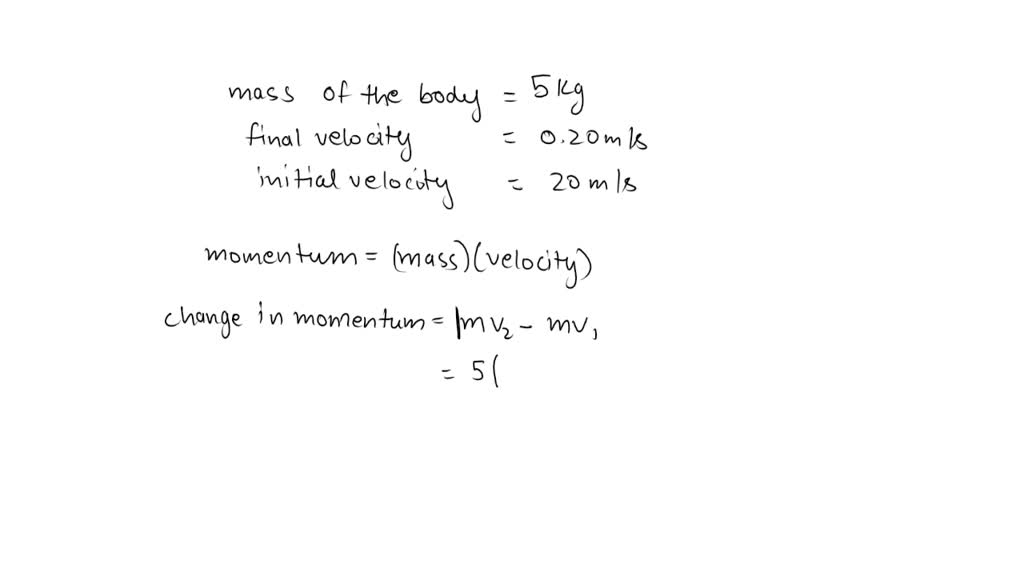 mass of the body = 5kg
final velocity = 0.20m/s
initial velocity = 20m/s
momentum = (mass)(velocity)
change in momentum = |mv₂ - mv₁
= 5(